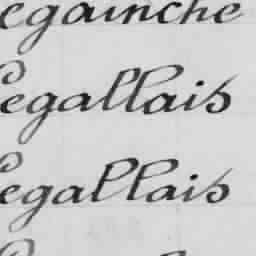 egainche
Legallais
Legallais